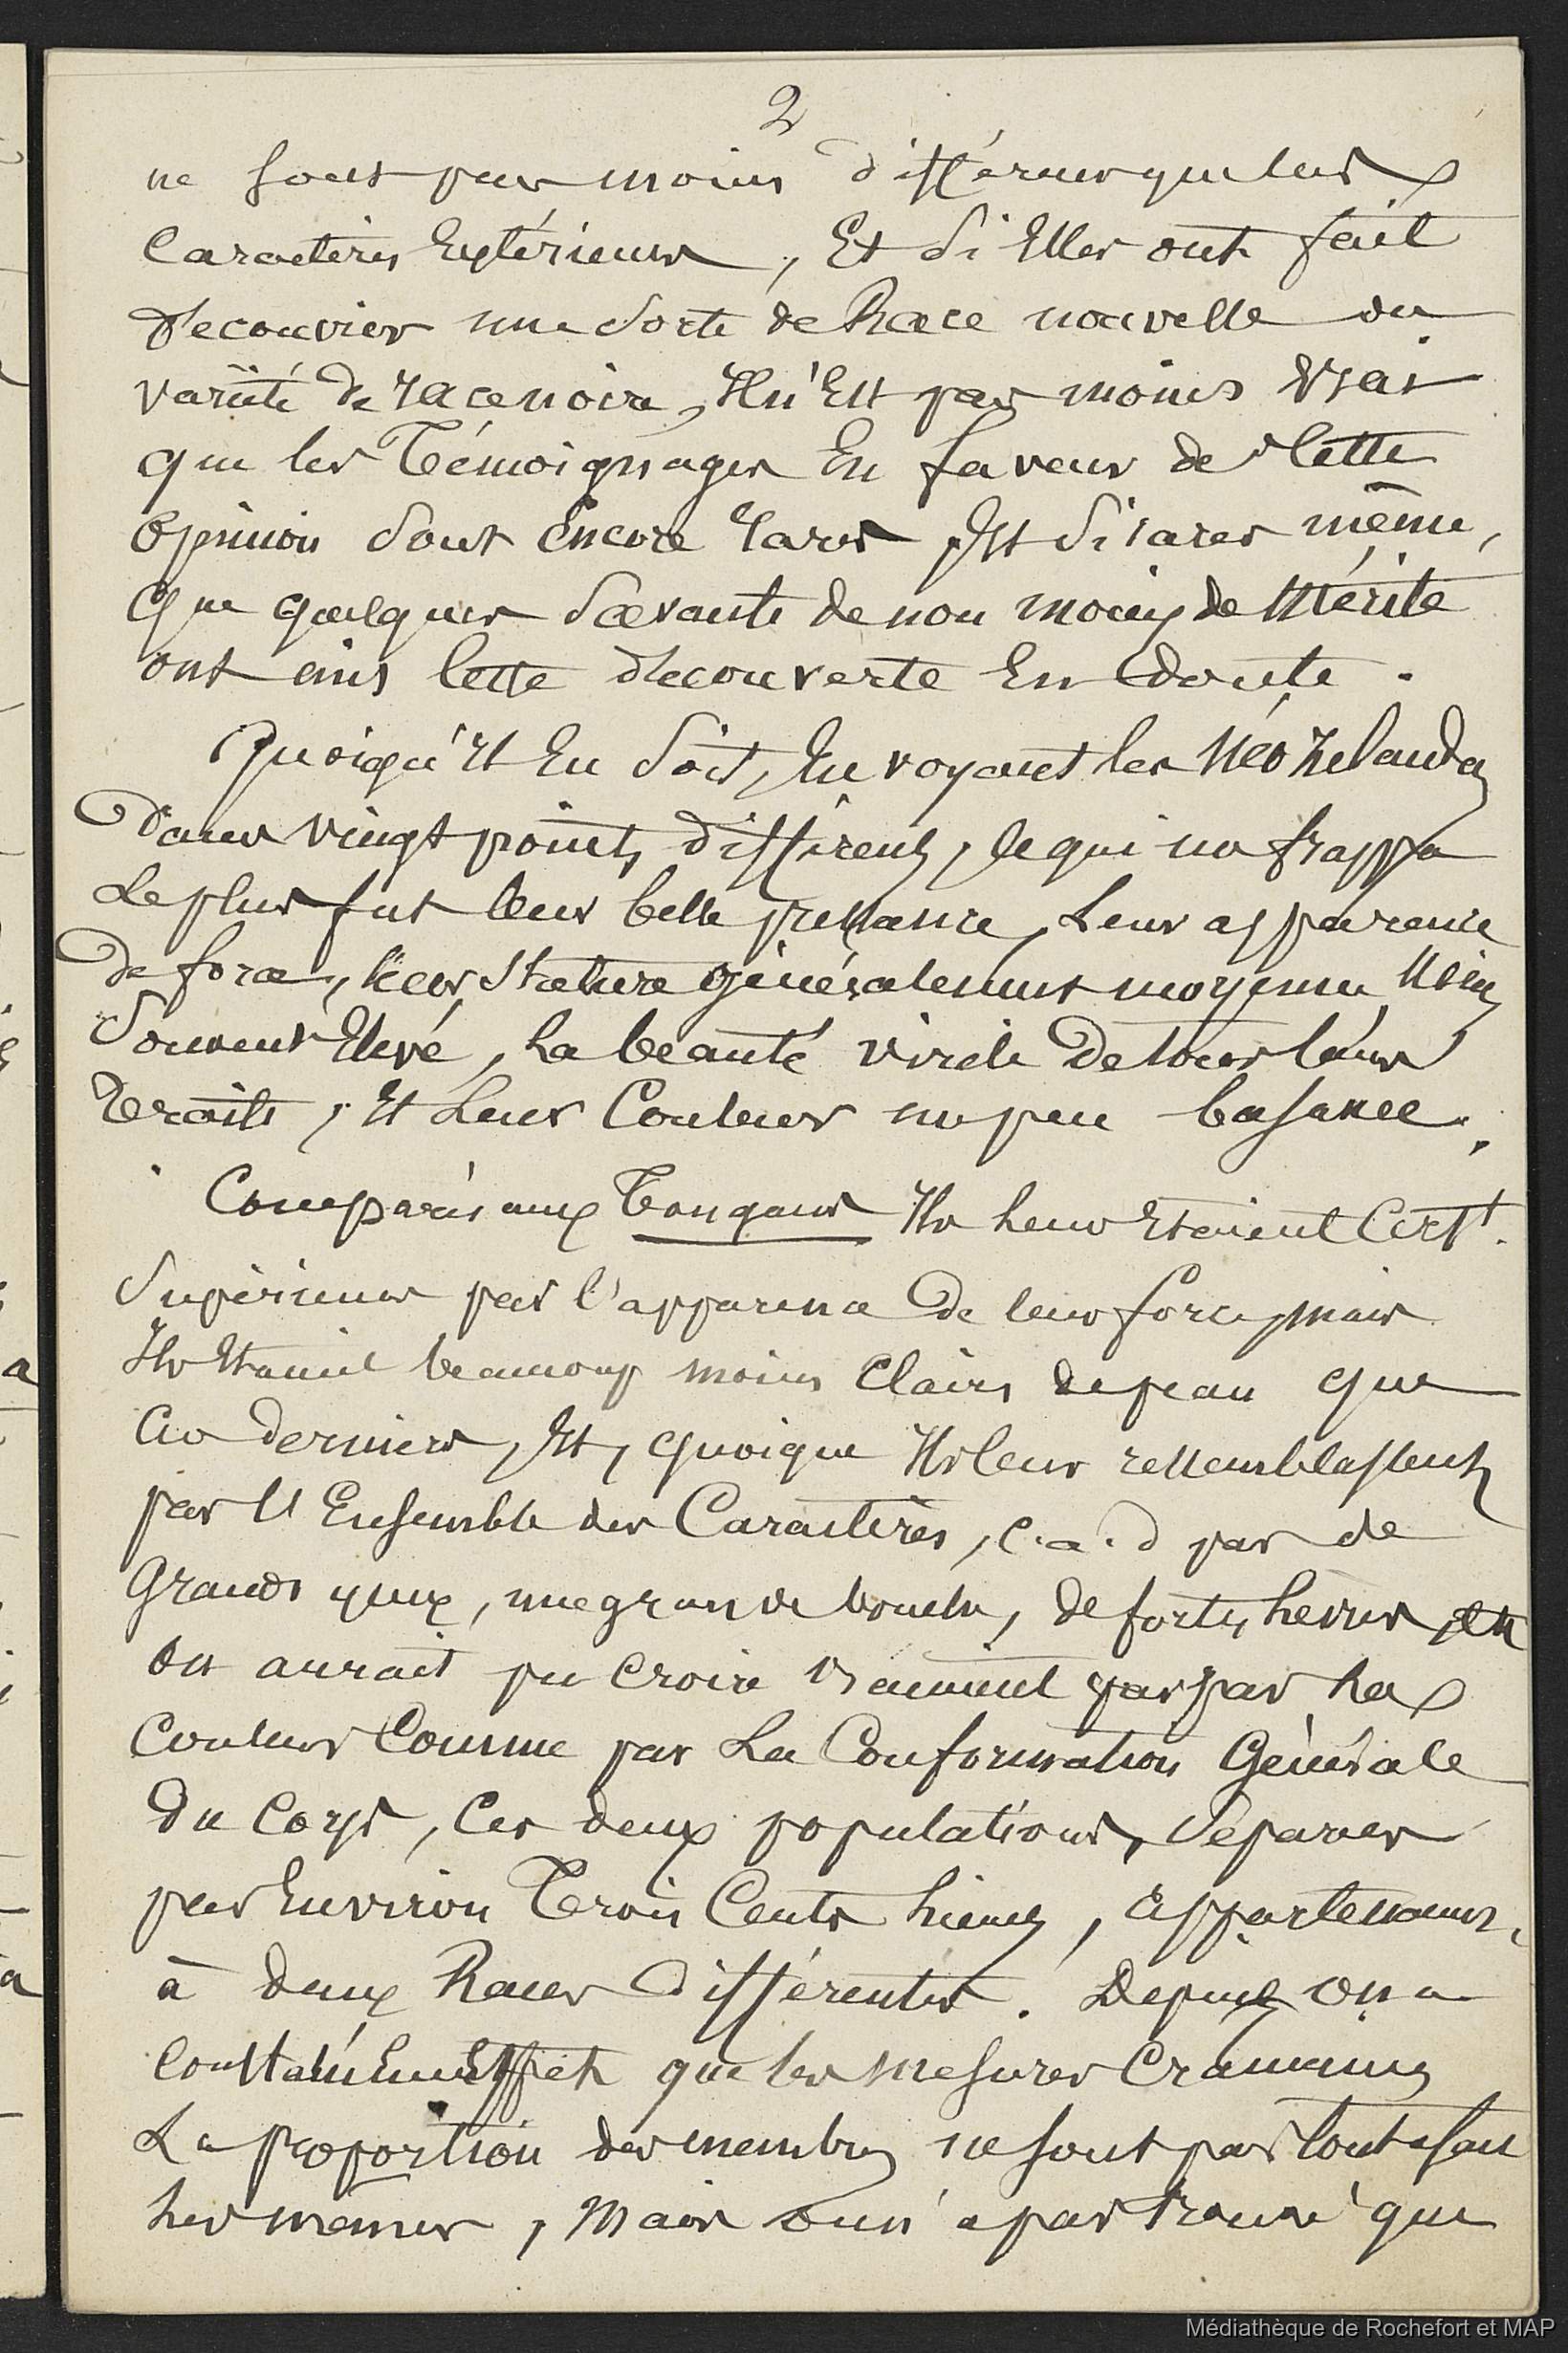 2
ne sont pas moins différens que leurs
Caractères Extérieurs, Et Si Elles ont fait
découvrir une Sorte de Race nouvelle ou
variété de race noire, Il n'Est pas moins Vrai
que les Témoignages En faveur de Cette
Opinion Sont Encore rares Et Si rares même,
que quelques Savants de non moins de Mérite
ont mis Cette découverte En doute.
Quoiqu'Il En Soit, En voyant les Néo Zelandais
Dans vingt points différents, Ce qui me frappa
Le plus fut leur belle prestance, Leur apparence
de force, leur Stature généralement moyenne Mais
Souvent Elevé, La beauté virile De tous leurs
Traits, Et Leur Couleur un peu basanée.
Comparés aux Tongans Ils Leur Etaient Certt.
Supérieurs par l'apparence De leur force, mais
Ils Etaient beaucoup moins Clairs de peau que
Ces derniers, Et, quoique Ils leur ressemblassent
par l'Ensemble des Caractères, C.a.d par de
Grands yeux, une grande bouche, de fortes Lèvres,
On aurait pu Croire Vraiment que par La
Couleur Comme par La Conformation Générale
Du Corps, Ces deux populations, Séparées
par Environ Trois Cents Lieues,
à deux Races Différentes. Depuis On a
Constaté En Effet que les Mesures Craniennes
La proportion des membres ne sont pas tout à fait
Les mêmes, Mais on n'a pas trouvé que
Médiathèque de Rochefort et MAP